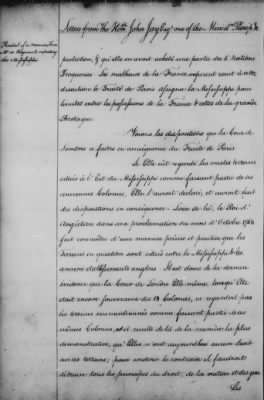 Letters from the Hon. John Jay Esq. one of the Ministers
Mississippi
protection, & qu'elle en avoit acheté une partie des 5. Nations
Iroquoises. Les malheurs de la France mirent fin à cette
discution: le Traité de Paris assigna le Mississippi pour
limites entre les possessions de la France & celles de la grande
Bretagne.
Voyons les dispositions que la Cour de
Londres a faites en conséquence du Traité de Paris.
Si Elle eût regardé les vastes terrains
cédés à l'Est du Mississippi comme faisant partie de ses
anciennes Colonies, Elle l'auroit déclaré, et auroit fait
des dispositions en conséquence. Loin de là, le Roi d'
Angleterre dans une proclamation du mois d'Octobre 1763
fait connoître d'une manière précise et positive que les
terreins en question sont situés entre le Mississippi & les
anciens établissements anglois. Il est donc de la dernière
évidence que la Cour de Londres Elle même, lorsqu'Elle
étoit encore Souveraine des 13 Colonies, ne regardoit pas
les terreins susmentionnés comme faisant partie de ces
mêmes Colonies, et il résulte de là de la manière la plus
démonstrative, qu'Elles n'ont aujourd'hui aucun droit
sur ces terreins; pour soutenir le contraire il faudroit
détruire tous les principes du droit de la nature et des gens
Les